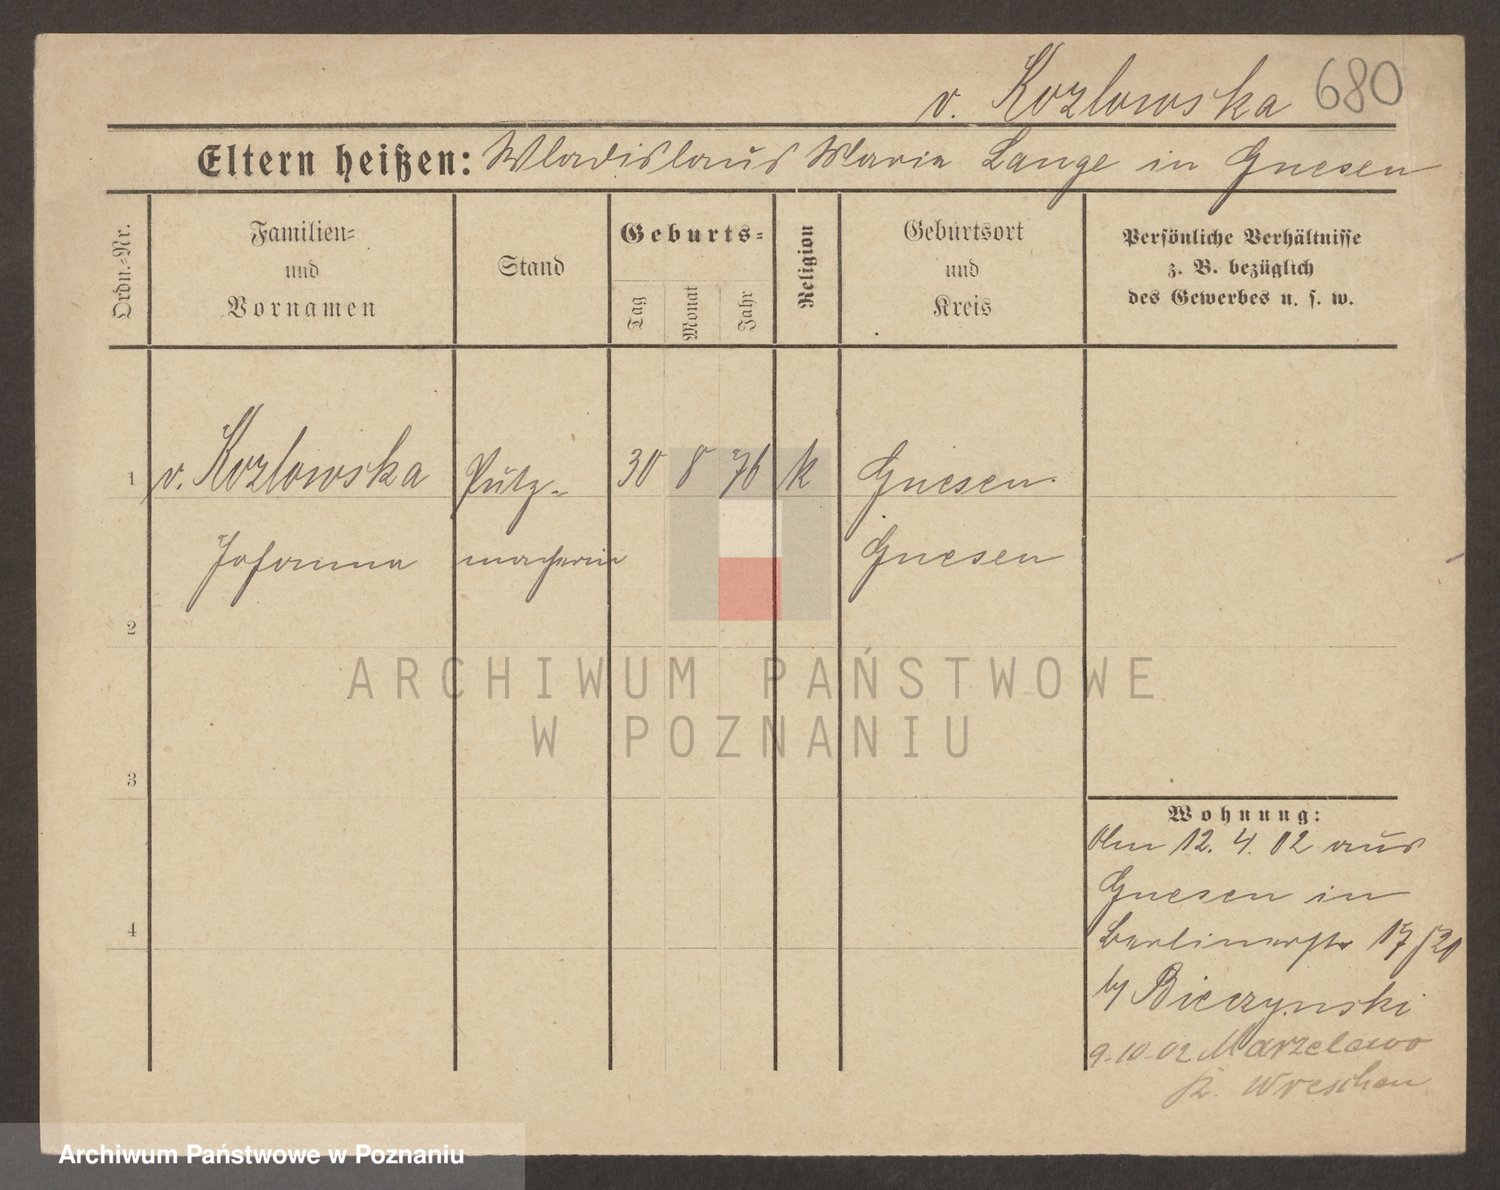 v. Kozlowska 680
Eltern heißen: Wladislaus Maria Lange in Gnesen
Ordn.=Nr.
Familien=
und
Vornamen
Stand
Geburts=
Tag
Monat
Jahr
Religion
Geburtsort
und
Kreis
Persönliche Verhältnisse
z. B. bezüglich
des Gewerbes u. s. w.
1 v. Kozlowska Putz- 30 8 76 k Gnesen
Johanna macherin Gnesen
2
ARCHIWUM PAŃSTWOWE
W POZNANIU
3
Wohnung:
Am 12. 4. 02 aus
Gnesen in
4
Berlinerstr 17/20
by Bieczynski
9.10.02 Marzelewo
K. Wreschen
Archiwum Państwowe w Poznaniu